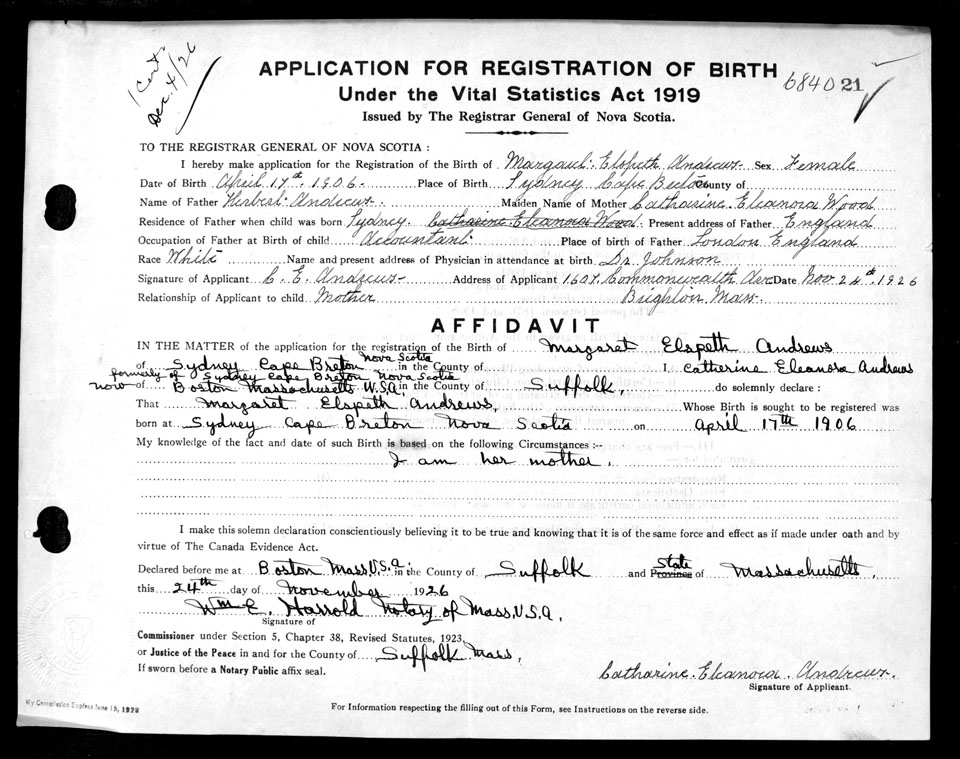 1 Cert.
Dec. 4/26
APPLICATION FOR REGISTRATION OF BIRTH
Under the Vital Statistics Act 1919
Issued by The Registrar General of Nova Scotia.
6840 21
TO THE REGISTRAR GENERAL OF NOVA SCOTIA :
I hereby make application for the Registration of the Birth of Margaret Elspeth Andrews Sex Female
Date of Birth April 17th 1906. Place of Birth Sydney Cape Breton County of
Name of Father Herbert Andrews. Maiden Name of Mother Catharine Eleanora Wood
Residence of Father when child was born Sydney. Catharine Eleanora Wood. Present address of Father England
Occupation of Father at Birth of child Accountant. Place of birth of Father London England
Race White Name and present address of Physician in attendance at birth. Dr Johnson
Signature of Applicant C. E. Andrews Address of Applicant 1607. Commonwealth Ave Date Nov 24th. 1926
Relationship of Applicant to child Mother Brighton Mass.
AFFIDAVIT
IN THE MATTER of the application for the registration of the Birth of Margaret Elspeth Andrews
of Sydney Cape Breton Nova Scotia in the County of I Catherine Eleanora Andrews
formerly of Sydney Cape Breton Nova Scotia
now of Boston Massachusetts U.S.A. in the County of Suffolk, do solemnly declare :
That Margaret Elspeth Andrews, Whose Birth is sought to be registered was
born at Sydney Cape Breton Nova Scotia on April 17th 1906
My knowledge of the fact and date of such Birth is based on the following Circumstances :--
I am her mother.
I make this solemn declaration conscientiously believing it to be true and knowing that it is of the same force and effect as if made under oath and by
virtue of The Canada Evidence Act.
Declared before me at Boston Mass U.S.A. in the County of Suffolk and State Province of Massachusetts,
this 24th day of November 1926
Wm E. Harrold Notary of Mass, U.S.A.
Signature of
Commissioner under Section 5, Chapter 38, Revised Statutes, 1923,
or Justice of the Peace in and for the County of Suffolk Mass,
If sworn before a Notary Public affix seal.
Catharine. Eleanora. Andrews.
Signature of Applicant.
My Commission Expires June 15, 1928
For Information respecting the filling out of this Form, see Instructions on the reverse side.